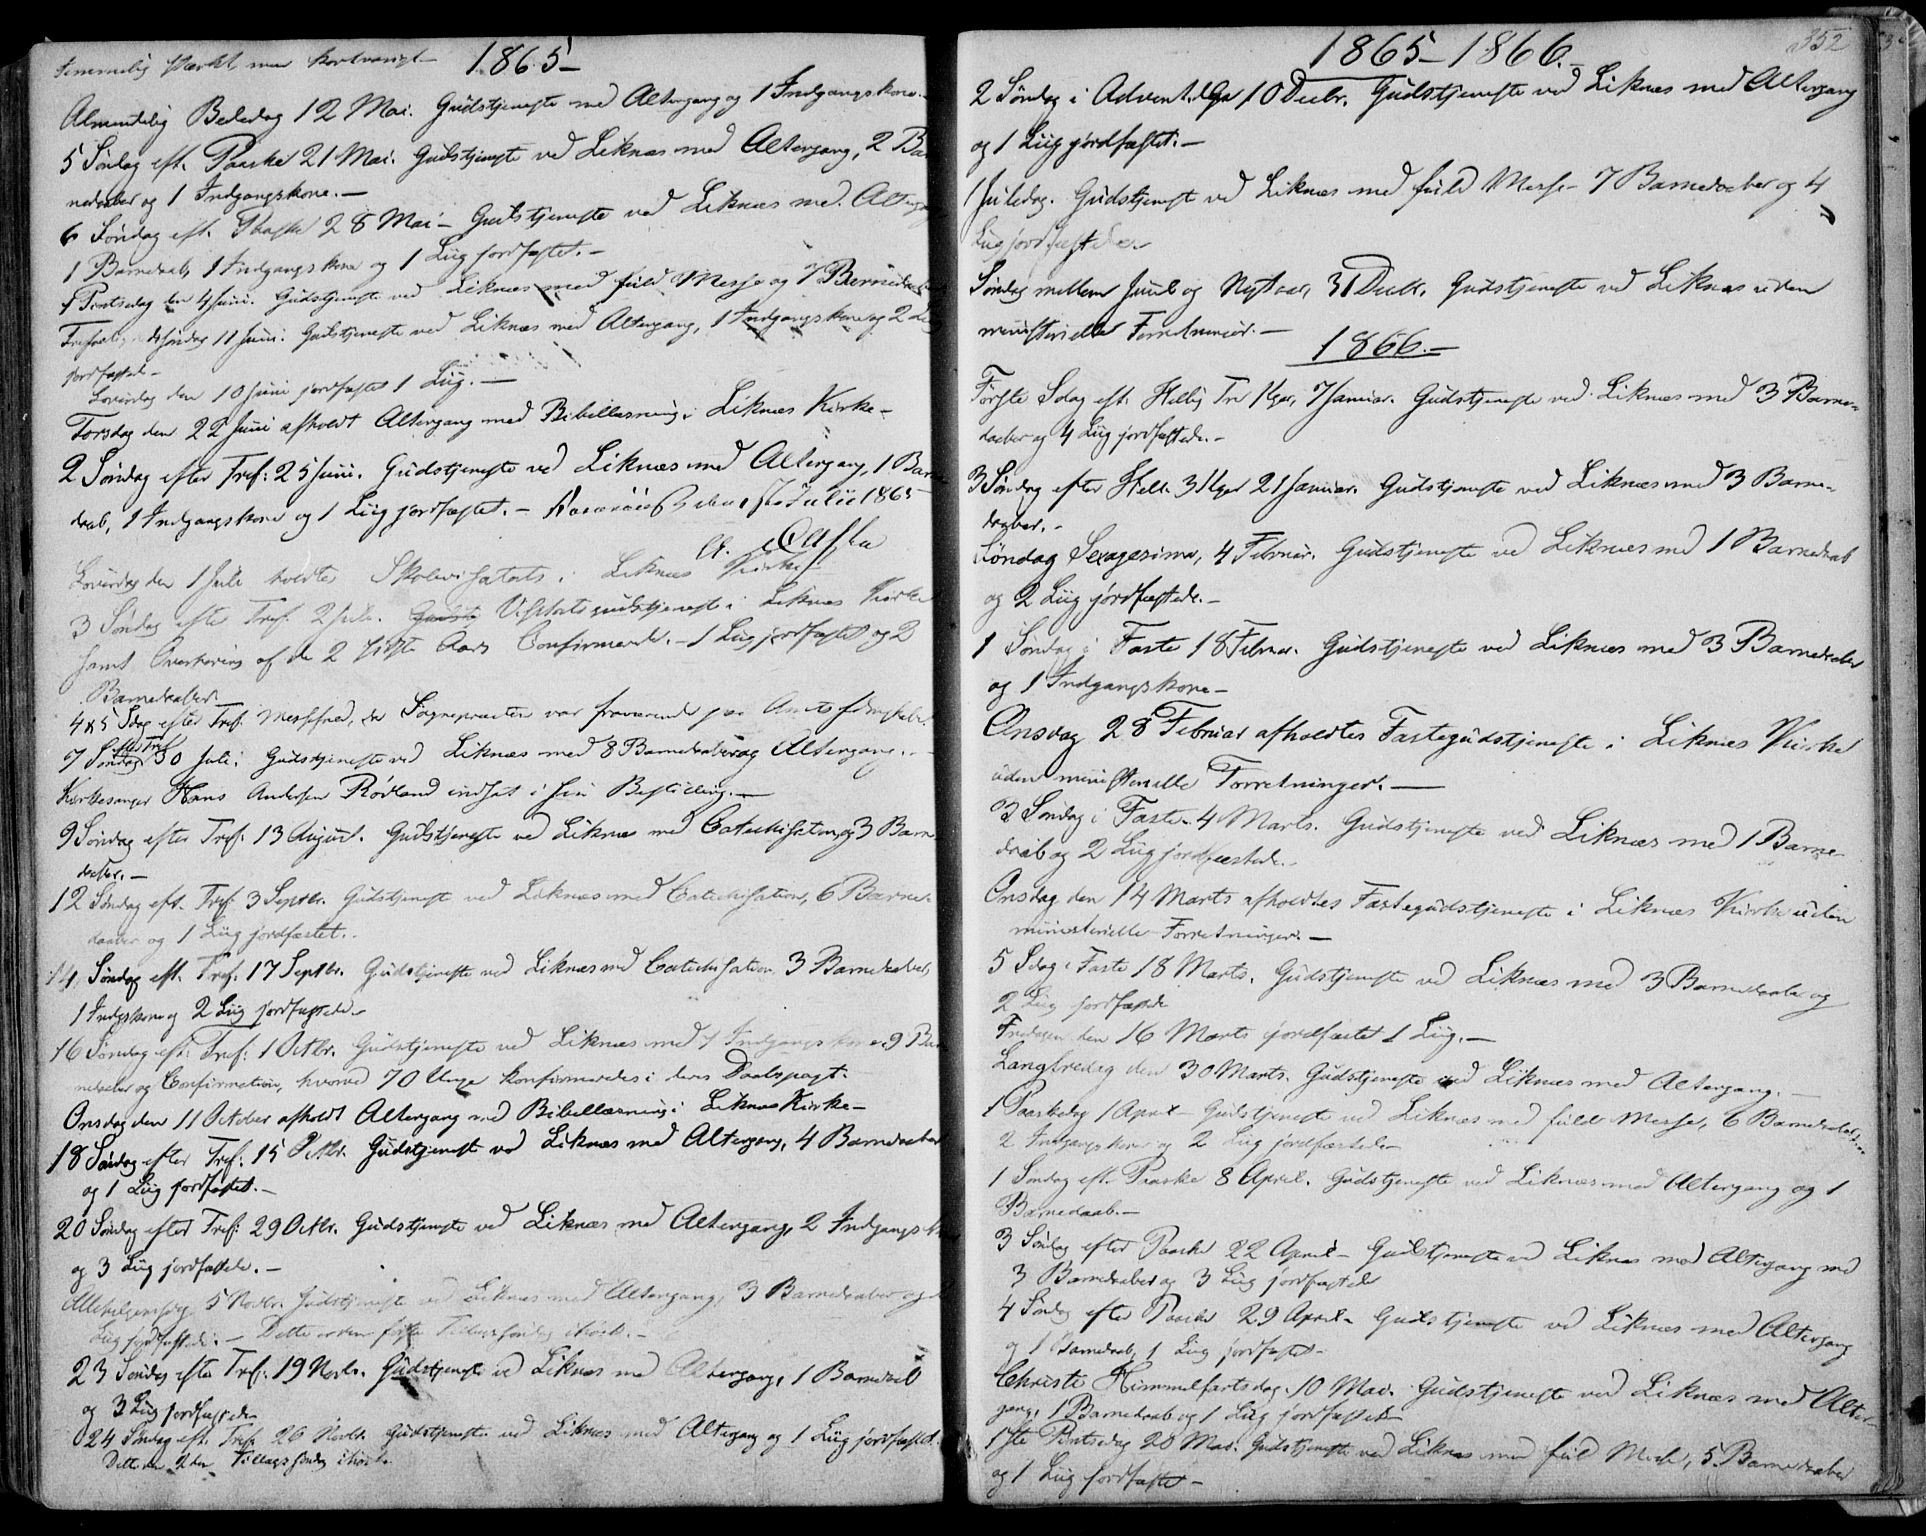 1865-
Almindelig Bededag 12 Mai. Gudstjeneste med Altergang og 1 Indgangskone.
5 Søndag eft. Paaske 21 Mai. Gudstjeneste ved Liknæs med Altergang, 2 Bar
nedaaber og 1 Indgangskone.-
6 Søndag eft. Paaske 28 Mai- Gudstjeneste ved Liknæs med Alterg
1 Barnedaab, 1 Indgangskone og 1 Liig jordfæstet.-
1 Pintsedag den 4 Juni. Gudstjeneste ved Liknæs med fuld Messe og 7 Barnedaab
11 Juni. Gudstjeneste ved Liknæs med Altergang, 1 Indgangskone og 2 Liig
jordfæstede-
Løverdag den 10 Juni jordfæstet 1 Liig.-
Torsdag den 22 Juni afholdt Altergang med Bibellæsning i Liknæs Kirke-
2 Søndag efter Tref: 25 Juni. Gudstjeneste ved Liknæs med Altergang, 1 Barne
daab, 1 Indgangskone og 1 Liig jordfæstet.- Julii 1865
Løverdag den 1 Juli holdtes Skolevisitats i Liknæs Kirke
3 Søndag efter Tref. 2 Juli. Gudstj Visitatsgudstjeneste i Liknæs Kirke
samt Overhøring af de 2 sidste Aars Confirmerede.- 1 Liig jordfæstet og 2
Barnedaaber-
4 & 5 Sdag efter Tref. Messefred, da Sognepræsten var fraværende paa
7 Søndag eft Tref 30 Juli. Gudstjeneste ved Liknæs med 8 Barnedaaber og Altergang.-
Kirkesanger Hans Andersen Rødland indsat i sin Bestilling.-
9 Søndag efter Tref. 13 August. Gudstjeneste ved Liknæs med Catechisation og 3 Barne
daaber.-
12 Søndag eft. Tref. 3 Septbr. Gudstjeneste ved Liknæs med Catechisation, 6 Barne-
daaber og 1 Liig jordfæstet.
14 Søndag eft. Tref. 17 Septbr. Gudstjeneste ved Liknæs med Catechisation, 3 Barnedaaber,
1 Indgskone og 2 Liig jordfæstede-
16 Søndag eft. Tref: 1 Octbr. Gudstjeneste ved Liknæs med 1 Indgangskone, 9 Bar
nedaaber og Confirmation, hvorved 70 Unge konfirmeredes i deres Daabspagt.
Onsdag den 11 October afholdt Altergang med Bibellæsning i Liknæs Kirke-
18 Søndag efter Tref: 15 Octbr. Gudstjeneste ved Liknæs med Altergang, 4 Barnedaaber
og 1 Liig jordfæstet.-
20 Søndag efter Tref: 29 Octbr. Gudstjeneste ved Liknæs med Altergang, 2 Indgangsk
og 3 Liig jordfæstede.-
Allehelgensdag 5 Novbr. Gudstjeneste ved Liknæs med Altergang, 3 Barnedaaber og
Liig jordfæstede.- Dette er den første Tillægssøndag i høst.-
23 Søndag efter Tref: 19 Novbr. Gudstjeneste ved Liknæs med Altergang, 1 Barnedaab
og 3 Liig jordfæstede
24 Søndag eft. Tref. 26 Novbr. Gudstjeneste ved Liknæs med Altergang og 1 Liig jordfæstet.
Dette den 2den Tillægssøndag i høst.
1865-1866.-
352
2 Søndag i Advent, 10 Decbr. Gudstjeneste ved Liknæs med Altergang
og 1 Liig jordfæstet.-
1 Juledag. Gudstjeneste ved Liknæs med fuld Messe- 7 Barnedaaber og 4
Liig jordfæstede.-
Søndag mellem Juul og Nytaar, 31 Decbr. Gudstjeneste ved Liknæs uden
ministerielle Forretninger.-
1866.-
Første Sdag eft. Hellig Tre Kger, 7 Januar. Gudstjeneste ved Liknæs med 3 Barne-
daaber og 4 Liig jordfæstede.-
3 Søndag efter Hell. 3 Kger 21 Januar. Gudstjeneste ved Liknæs med 3 Barne-
daaber.-
Søndag Sexagesima, 4 Februar. Gudstjeneste ved Liknæs med 1 Barnedaab
og 2 Liig jordfæstede.-
1 Søndag i Faste 18 Februar. Gudstjeneste ved Liknæs med 3 Barnedaaber
og 1 Indgangskone-
Onsdag 28 Februar afholdtes Fastegudstjeneste i Liknæs Kirke
uden ministerielle Forretninger.-
3 Søndag i Faste. 4 Marts. Gudstjeneste ved Liknæs med 1 Barne-
daab og 2 Liig jordfæstede.-
Onsdag den 14 Marts afholdtes Fastegudstjeneste i Liknæs Kirke uden
ministerielle Forretninger.-
5 Sdag i Faste 18 Marts. Gudstjeneste ved Liknæs med 3 Barnedaaber og
2 Liig jordfæstede
Fredagen den 16 Marts jordfæstet 1 Liig.-
Langfredag den 30 Marts. Gudstjeneste ved Liknæs med Altergang.-
1 Paaskedag 1 April- Gudstjeneste ved Liknæs med fuld Messe, 6 Barnedaaber,
2 Indgangskoner og 2 Liig jordfæstede-
1 Søndag eft. Paaske 8 April. Gudstjeneste ved Liknæs med Altergang og 1
Barnedaab.-
3 Søndag efter Paaske 22 April- Gudstjeneste ved Liknæs med Altergang med
3 Barnedaaber og 3 Liig jordfæstede
4 Søndag efter Paaske 29 April- Gudstjeneste ved Liknæs med Altergang
og 1 Barnedaab, 1 Liig jordfæstet-
Christi Himmelfartsdag. 10 Mai. Gudstjeneste ved Liknæs med Alter-
gang, 1 Barnedaab og 1 Liig jordfæstet
1ste Pintsedag 20 Mai. Gudstjeneste ved Liknæs med fuld Messe, 5 Barnedaaber
og 1 Liig jordfæstet-